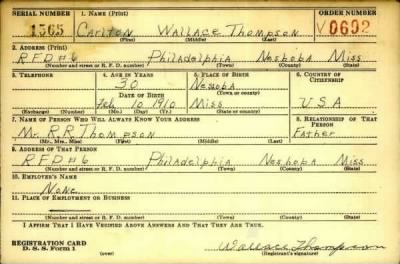 SERIAL NUMBER 1. NAME (Print) ORDER NUMBER
1565 Carlton Wallace Thompson V0692
(First) (Middle) (Last)
2. ADDRESS (Print)
RFD#6 Philadelphia Neshoba Miss
(Number and street or R. F. D. number) (Town) (County) (State)
3. TELEPHONE 4. AGE IN YEARS 5. PLACE OF BIRTH 6. COUNTRY OF CITIZENSHIP
30 Neshoba
DATE OF BIRTH (Town or county)
Feb, 10 1910 Miss USA
(Exchange) (Number) (Mo.) (Day) (Yr.) (State or country)
7. NAME OF PERSON WHO WILL ALWAYS KNOW YOUR ADDRESS 8. RELATIONSHIP OF THAT PERSON
Mr. R.R. Thompson Father
(Mr., Mrs., Miss) (First) (Middle) (Last)
9. ADDRESS OF THAT PERSON
RFD#6 Philadelphia Neshoba Miss
(Number and street or R. F. D. number) (Town) (County) (State)
10. EMPLOYER'S NAME
None
11. PLACE OF EMPLOYMENT OR BUSINESS
(Number and street or R. F. D. number) (Town) (County) (State)
I AFFIRM THAT I HAVE VERIFIED ABOVE ANSWERS AND THAT THEY ARE TRUE.
REGISTRATION CARD
D. S. S. Form 1 (over) Wallace Thompson
(Registrant's signature)